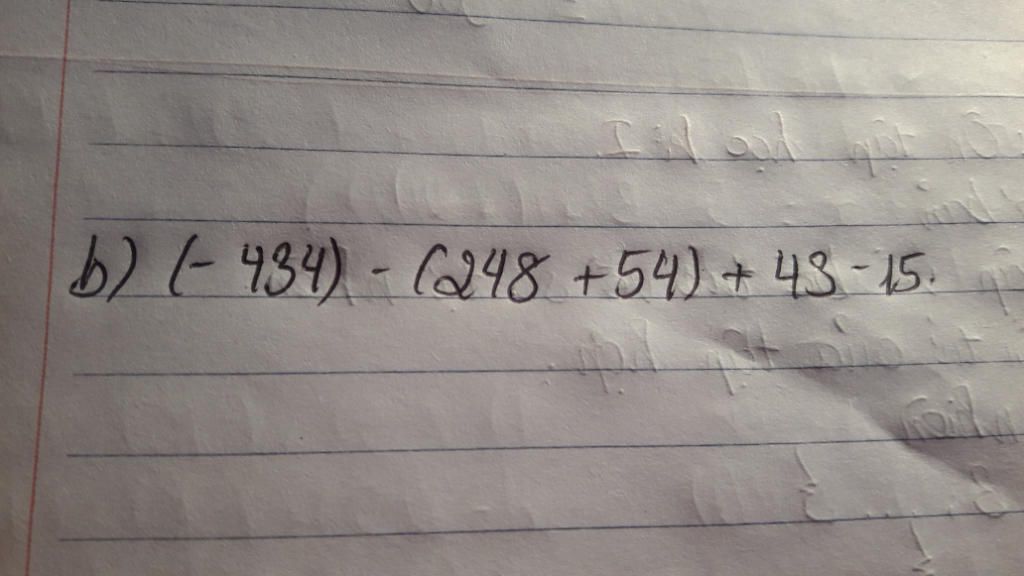 b) (- 434) - (248 + 54) + 43 - 15.